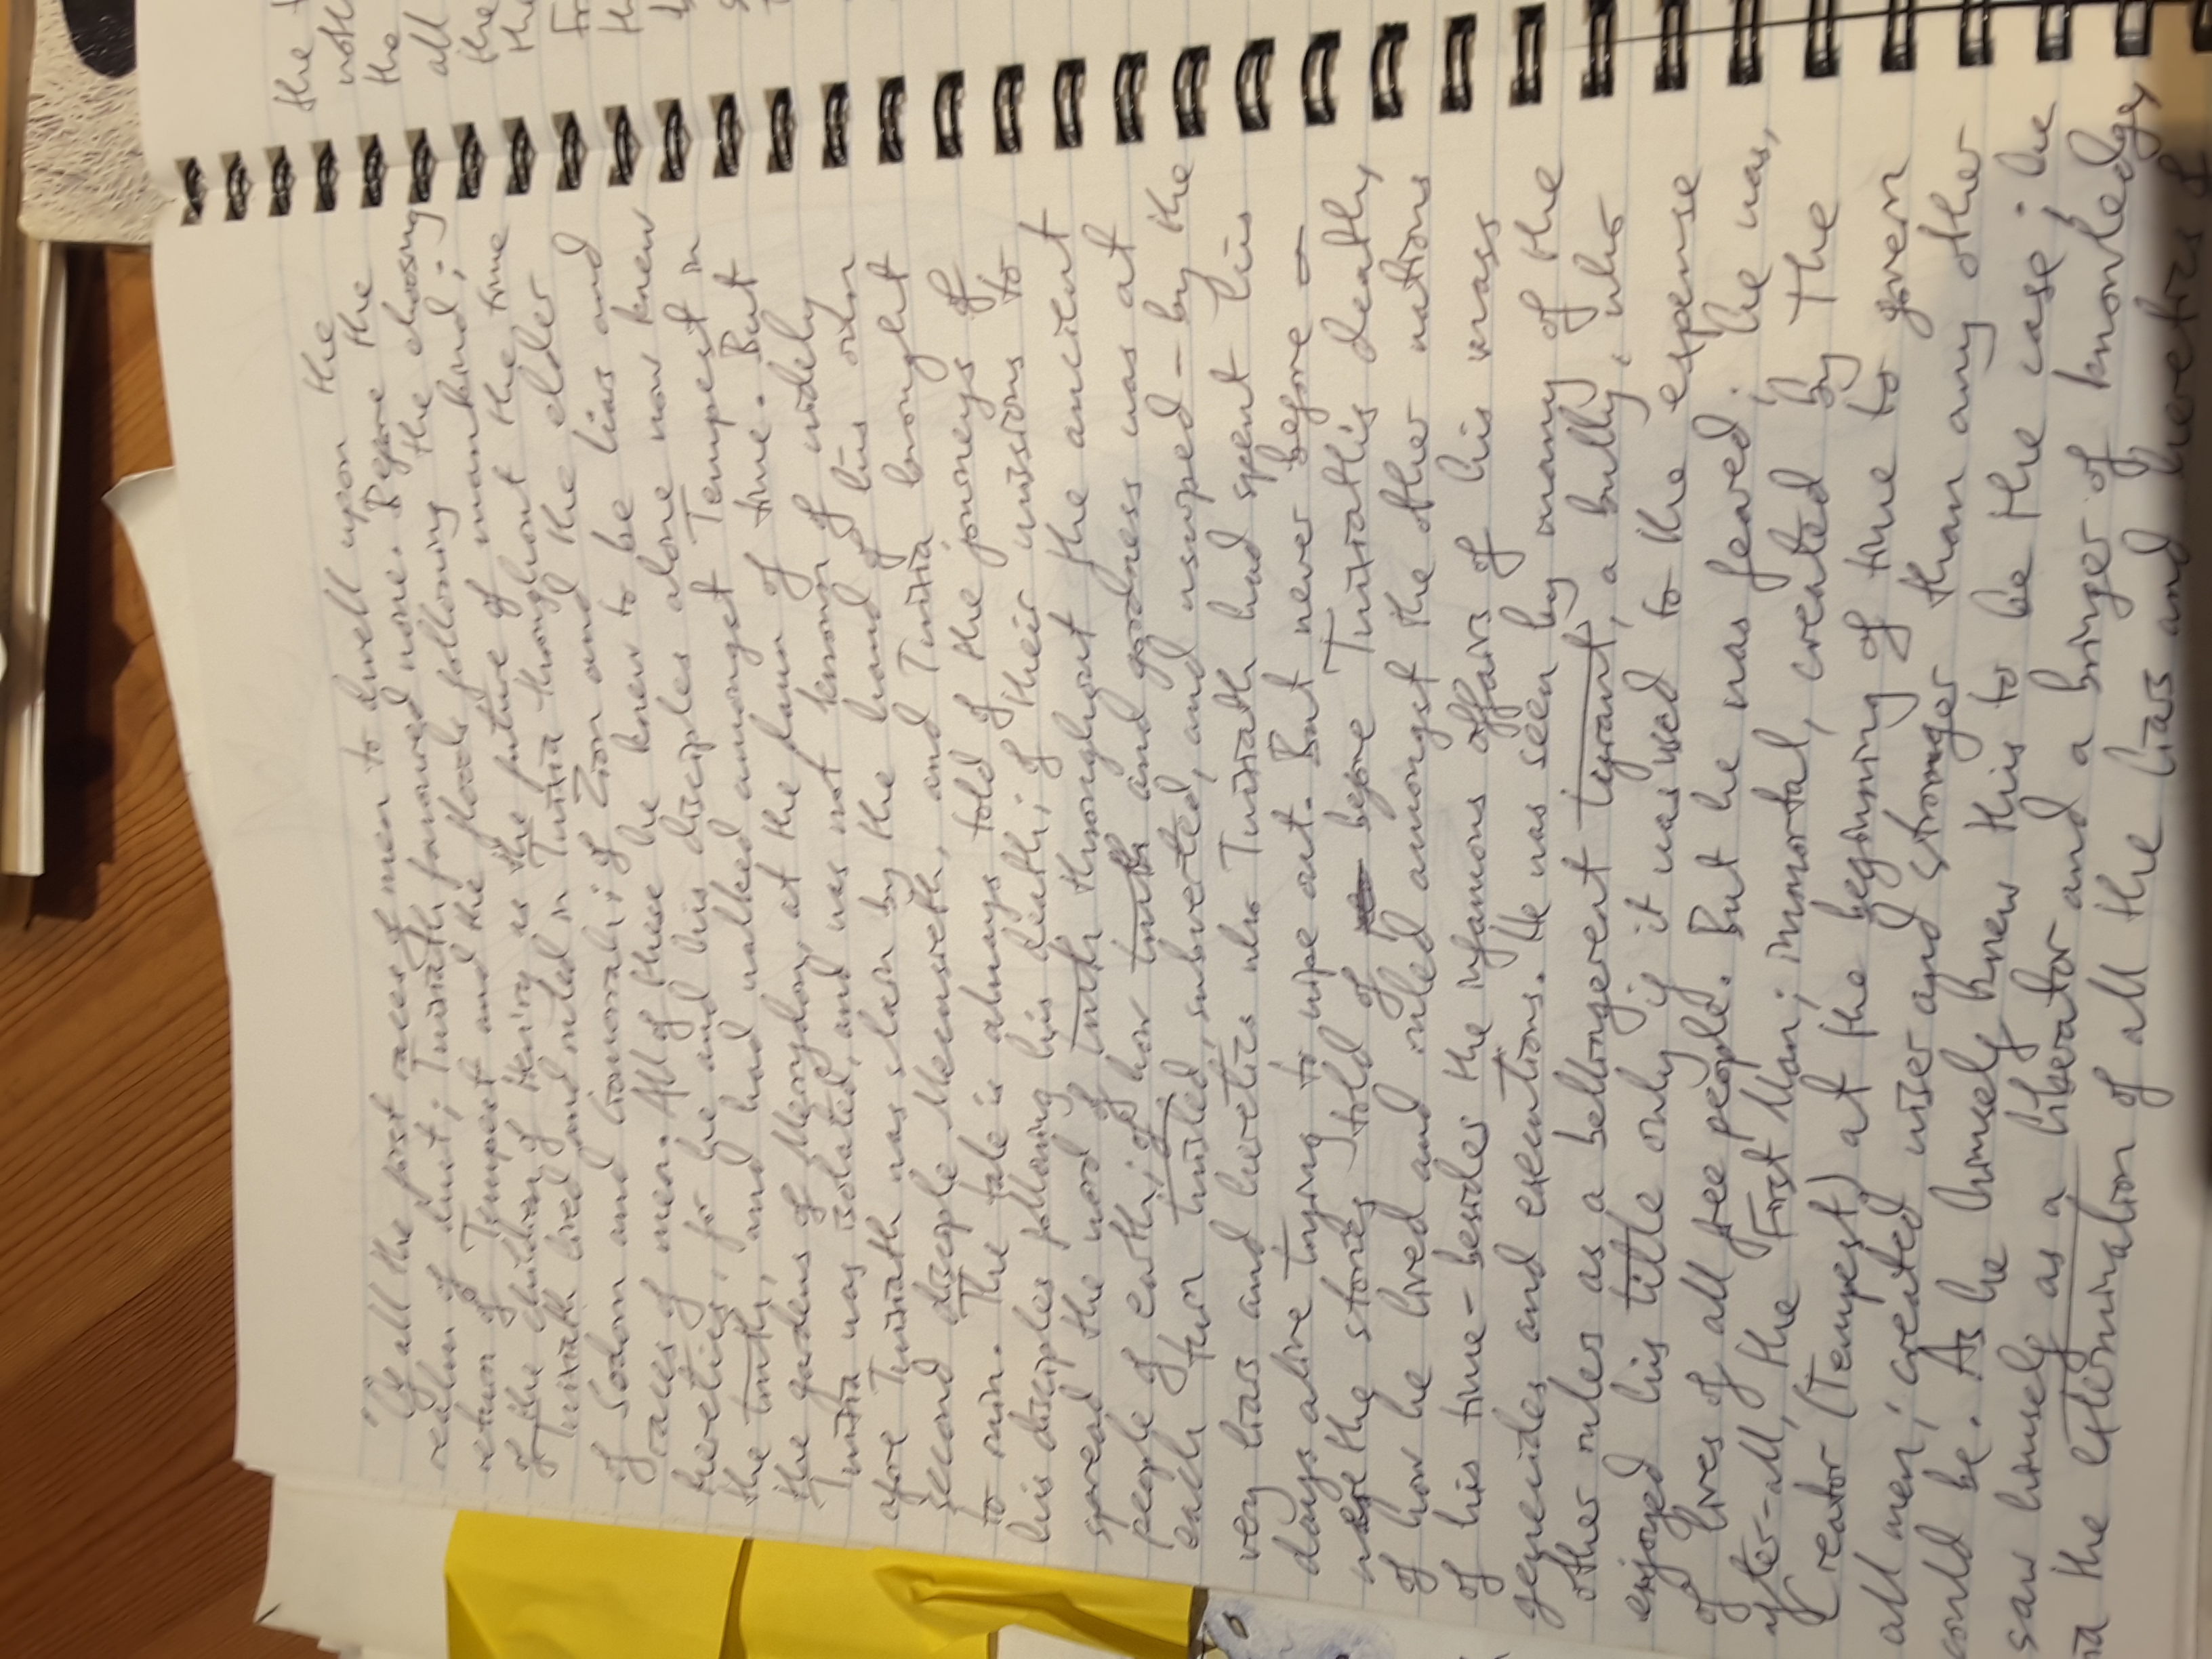 "Of all the first races of men to dwell upon the
realm of dust; Twixiath favoured none. Before the
return of Tempest and the floods following the choosing
of the children of as the future of mankind;
Twixiath lived and ruled in Twixia throughout the time
of Sodom and Gomorrah; of Zion and the elder
races of men. All of these he knew to be liars and
heretics, for he and his disciples alone now knew
the truth, and had walked amongst Tempest in
the gardens of Merrydon, at the dawn of time. But
Twixia was isolated, and was not known of widely
afore Twixiath was slain by the hand of his own
second disciple and Twixia brought
to ruin. The tale is always told of the journeys of
his disciples following his death; of their missions to
spread the word of truth throughout the ancient
people of earth; of how truth and goodness was at
each turn twisted, subverted, and usurped - by the
very liars and heretics who Twixiath had spent his
days alive trying to wipe out. But never before
were the stories told of before Twixiath's death,
of how he lived and ruled amongst the other nations
of his time - besides the infamous affairs of his mass
genecides and executions. He was seen by many of the
other rulers as a bellingerent tyrant, a bully, who
enjoyed his title only if it was used to the expense
of lives of all free people. But he was feared; he was,
after-all, the First Man; immortal, created by The
Creator (Tempest) at the beginning of time to govern
all men; created wiser and stronger than any other
could be. As he himself knew this to be the case; he
saw himself as a liberator and a bringer of knowledge,
the extermination of all the liars and heretics of
the
the
all
the